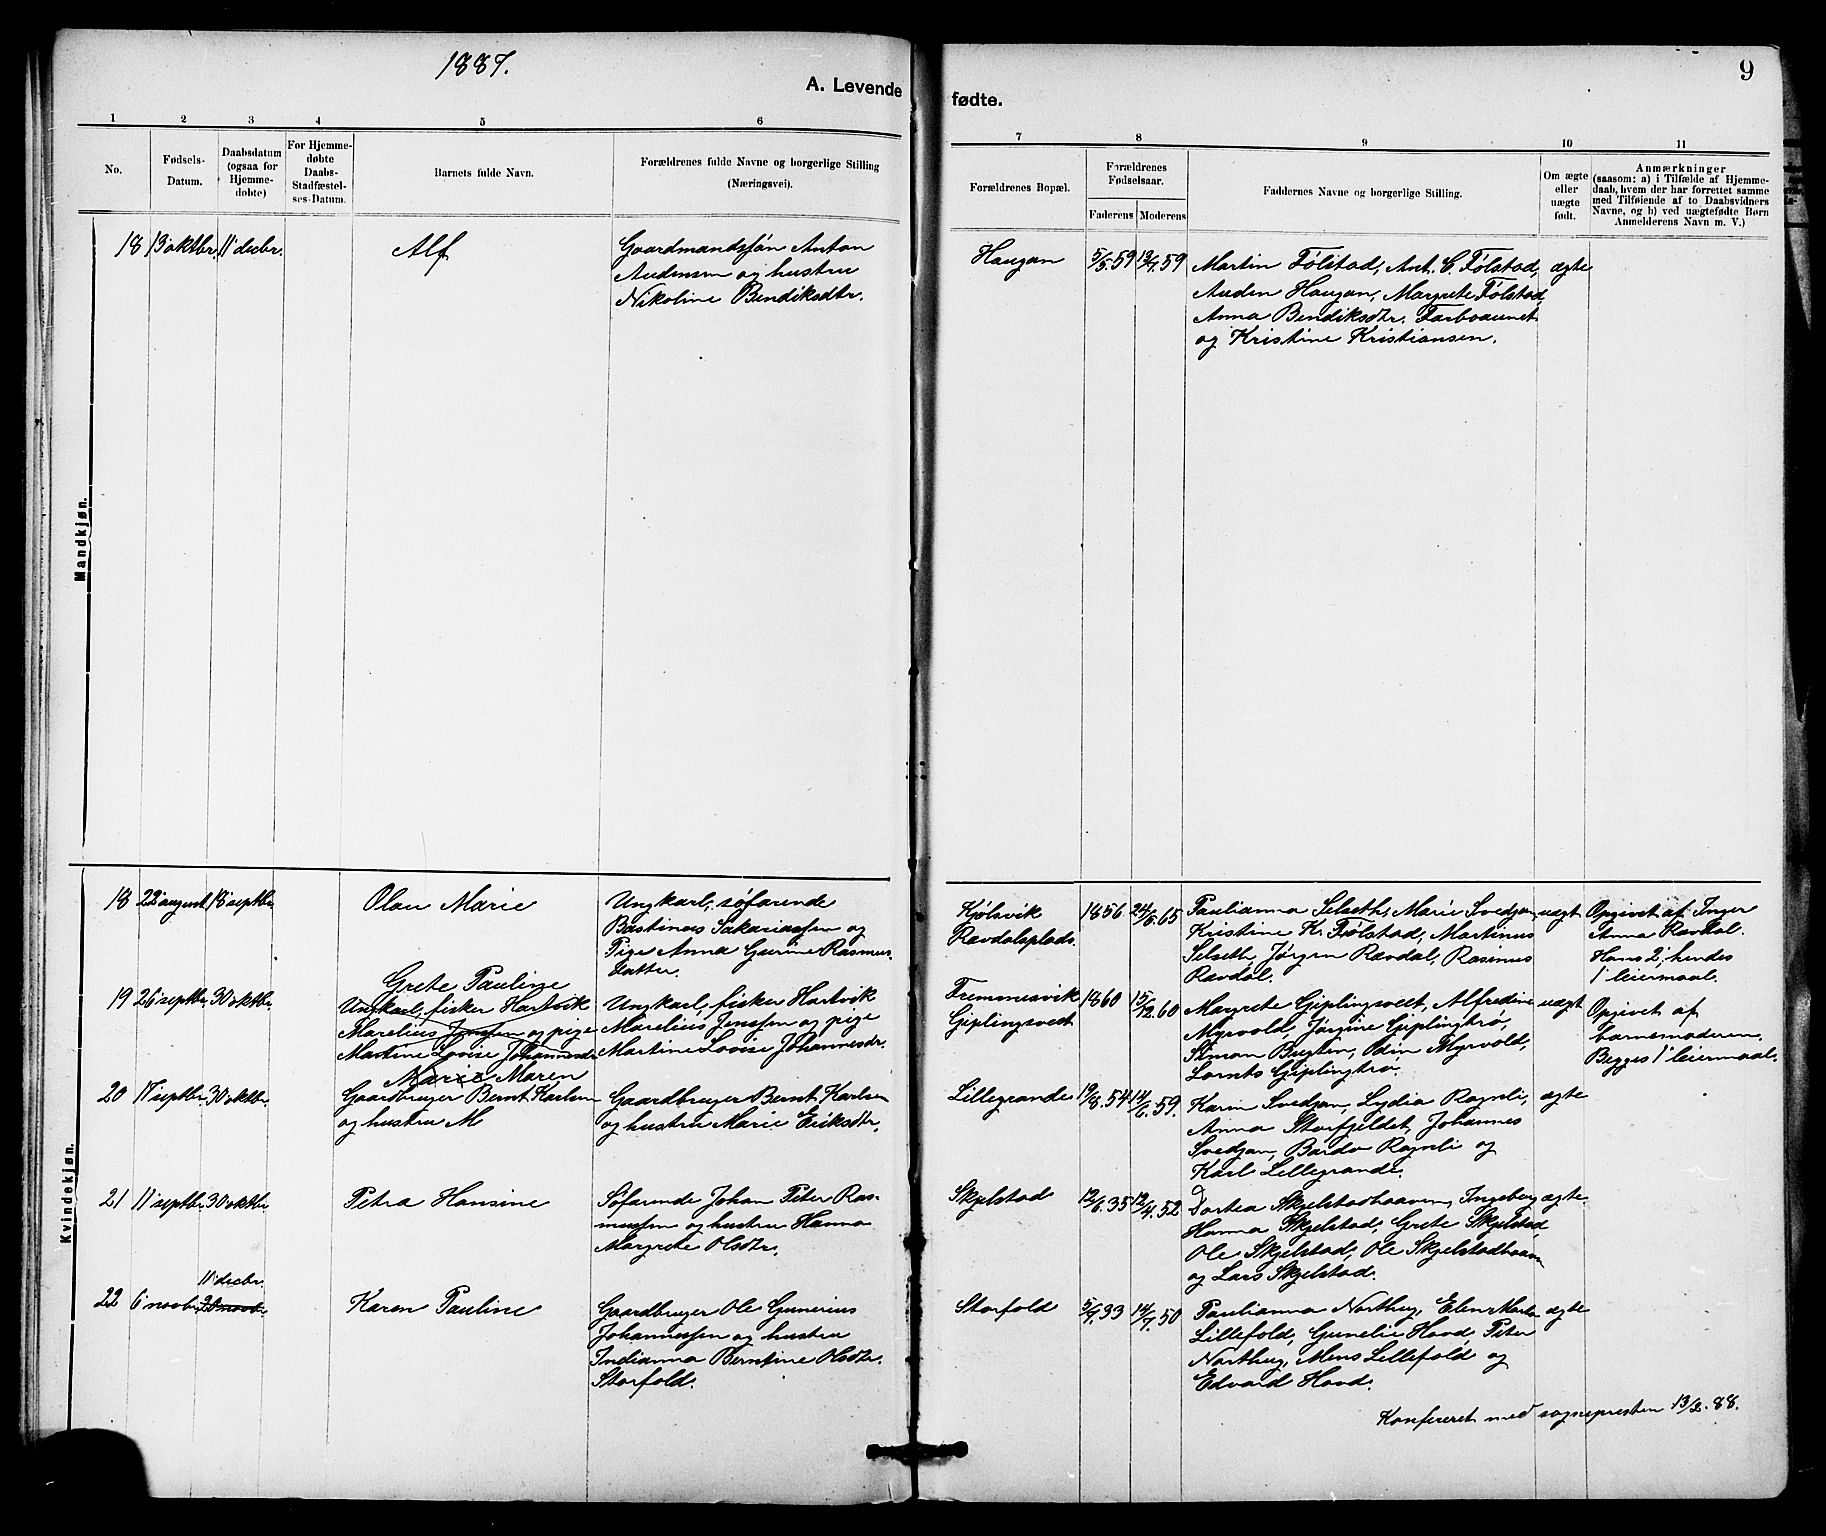 1887.
A. Levende
fødte.
9
1 2 3 4 5 6
7 8 9 10 11
No.
Fødsels-
Datum.
Daabsdatum
(ogsaa for
Hjemme-
døbte)
For Hjemme-
døbte
Daabs-
Stadfæstel-
ses-Datum.
Barnets fulde Navn.
Forældrenes fulde Navne og borgerlige Stilling
(Næringsvei).
Forældrenes Bopæl.
Forældrenes
Fødselsaar.
Faderens Moderens
Faddernes Navne og borgerlige Stilling.
Om ægte
eller
uægte
født.
Anmærkninger
(saasom: a) i Tilfælde af Hjemme-
daab, hvem der har forrettet samme
med Tilføiende af to Daabsvidners
Navne, og b) ved uægtefødte Børn
Anmelderens Navn m. V.)
Mandkjøn.
18 13 oktbr. 11 decbr. Alf
Gaardmandssøn Anton
Audensen og hustru
Nikoline Bendiksdtr.
Haugan 5/5.59 12/7.59
Martin Følstad, Ant. C. Følstad, ægte
Auden Haugan, Margrete Følstad,
Anna Bendiksdtr. Tarvaaunet
og Kristine Kristiansen.
Kvindekjøn.
18 22 august 18 septbr. Olau Marie
Ungkarl, søfarende
Bastinus Sakariassen og
Pige Anna Gurine Rasmus-
datter.
Kjølsvik
Ravdalsplads.
1856 24/5.65
Paulianna Selseth, Marie Svedjan, uægt
Kristine K. Følstad, Martinus
Selseth, Jørgen Ravdal, Rasmus
Ravdal.
Opgivet af Inger
Anna Ravdal.
Hans 2', hendes
1' leiermaal.
19 26 septbr. 30 oktbr. Grete Pauline
Ungkarl, fisker Hartvik
Marelius Jenssen og pige
Martine Lovise Johannesdtr.
Ungkarl, fisker Hartvik
Marelius Jenssen og pige
Martine Lovise Johannesdtr.
Fremmesvik
Gjeplingsvedt
1860 15/12.60
Margrete Gjeplingsvedt, Alfredine uægt
Myrvold, Jørgine Gjeplingtrø,
Simon Bugten, Odin Myrvold,
Lornts Gjeplingtrø.
Opgivet af
barnemoderen.
Begges 1' leiermaal.
20 11 septbr. 30 oktbr. Marie Maren
Gaardbruger Bernt Karlsen
og hustru M
Gaardbruger Bernt Karlsen
og hustru Marie Eriksdtr.
Lillegrande 19/8.54 14/6.59.
Karin Svedjan, Lydia Ragnli, ægte
Anna Storfjeldet, Johannes
Svedjan, Bardo Ragnli og
Karl Lillegrande.
21 11 septbr. 30 oktbr Petra Hansine
Søfarende Johan Peter Ras-
mussen og hustru Hanna
Margrete Olsdtr.
Skjelstad 12/6.35 12/4.52
Dortea Skjelstadhaaven, Ingeborg ægte.
Hanna Skjelstad, Grete Skjelstad,
Ole Skjelstad, Ole Skjelstadhaaven
og Lars Skjelstad.
11 decbr.
22 6 novbr. 20 novbr. Karen Pauline
Gaardbruger Ole Gunerius
Johannessen og hustru
Indianna Berntine Olsdtr.
Storfold.
Storfold 5/9.33 14/7.50
Paulianna Northug, Elen Marta ægte
Lillefold, Gunelie Hood, Peter
Northug, Mens Lillefold og
Edvard Hood.
Konfereret med sognepresten 13/2.88.